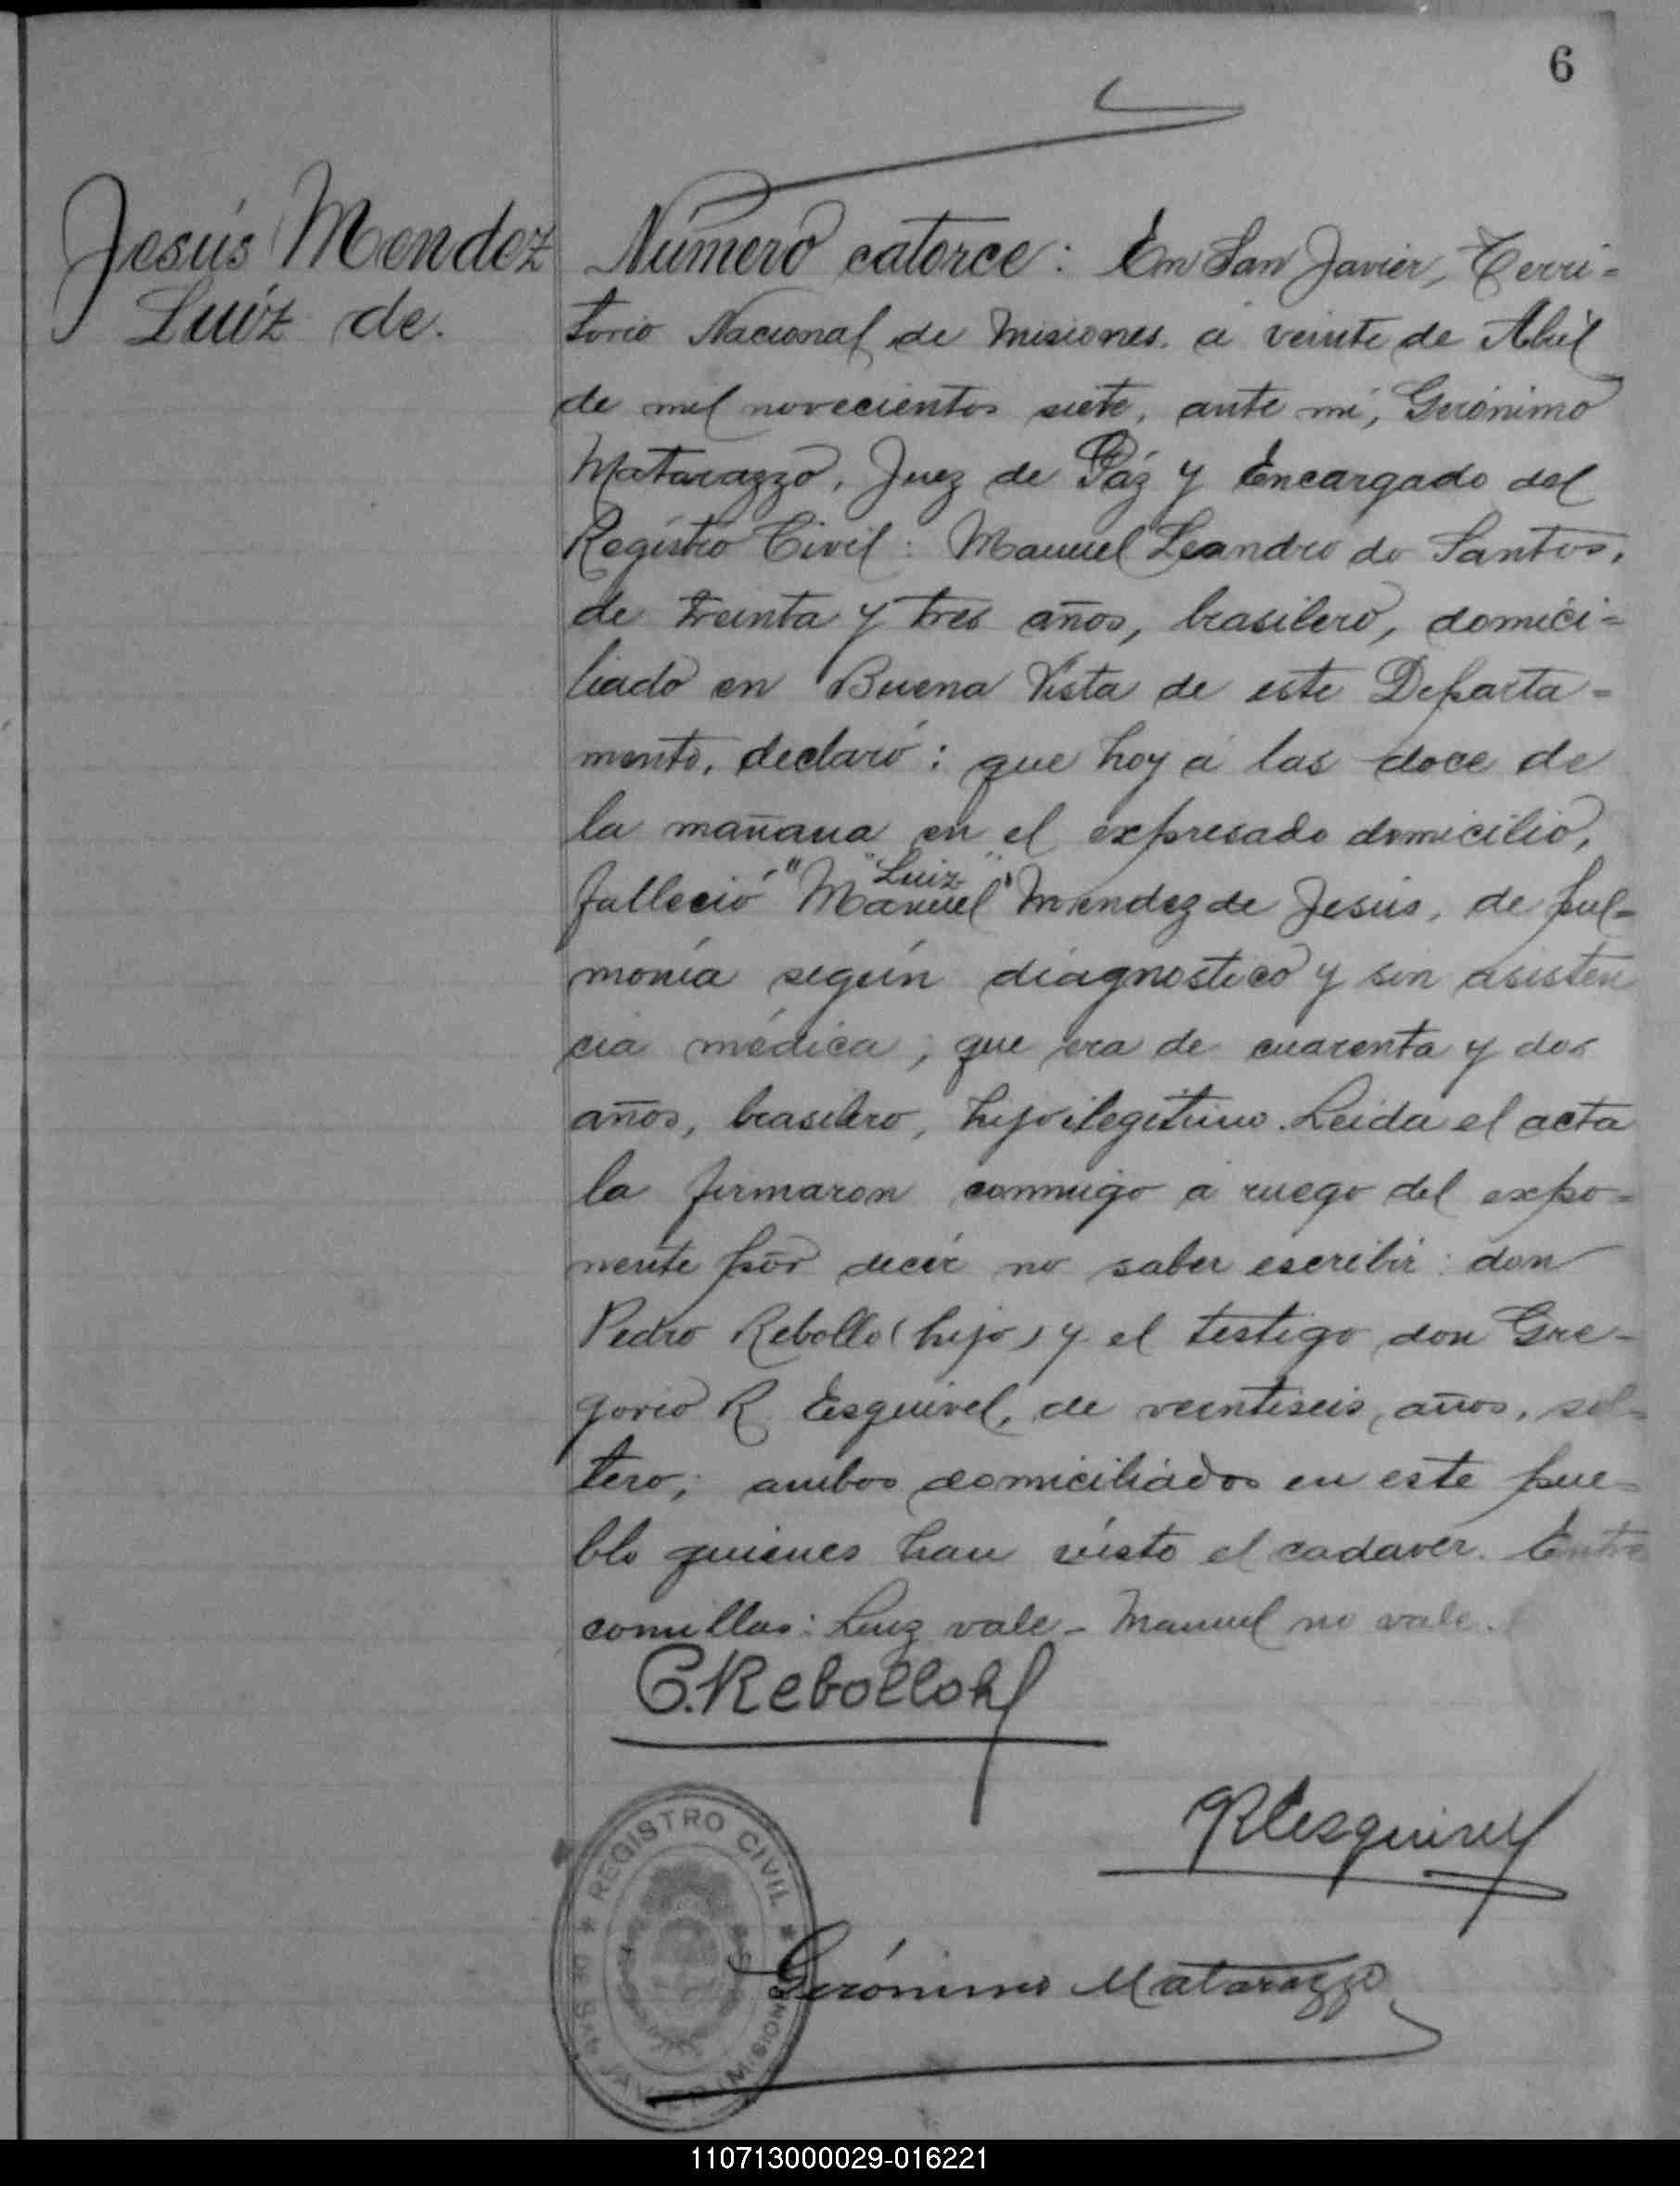 6
Jesús Mendez
Luiz de.
Número catorce: En San Javier, Terri=
torio Nacional de Misiones. á veinte de Abril
de mil novecientos siete, ante mí, Gerónimo
Matarazzo, Juez de Páz y Encargado del
Registro Civil: Manuel Leandro do Santos,
de treinta y tres años, brasilero, domici=
liado en Buena Vista de este Departa=
mento, declaró: que hoy á las doce de
la mañana en el expresado domicilio,
"Luiz"
falleció "Manuel" Mendez de Jesús, de pul=
monía según diagnostico y sin asisten
cia médica; que era de cuarenta y dos
años, brasilero, hijo ilegitimo. Leida el acta
la firmaron conmigo á ruego del expo=
nente por decir no saber escribir: don
Pedro Rebollo (hijo) y el testigo don Gre-
gorio R Esquivel, de veintiseis años, sol=
tero; ambos domiciliados en este pue=
blo quienes han visto el cadaver. Entre
comillas: Luiz vale - Manuel no vale.
P. Rebollo h
REsquivel
REGISTRO CIVIL
DE San JAVIER (MISIONES)
Gerónimo Matarazzo
110713000029-016221